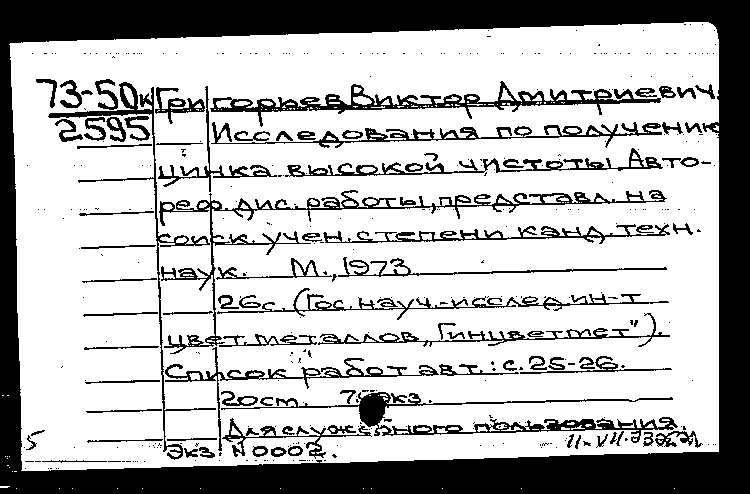 73-50к Григорьев, Виктор Дмитриевич.
2595 Исследования по получению
цинка высокой чистоты. Авто-
реф. дис. работы, представл. на
соиск. учен. степени канд. техн.
наук. М., 1973
26с. (Гос. науч.-исслед. ин-т
цвет. металлов „Гинцветмет").
Список работ авт.: с. 25-26.
20ст. экз.
Для служебного пользования.
Экз N0002.
5